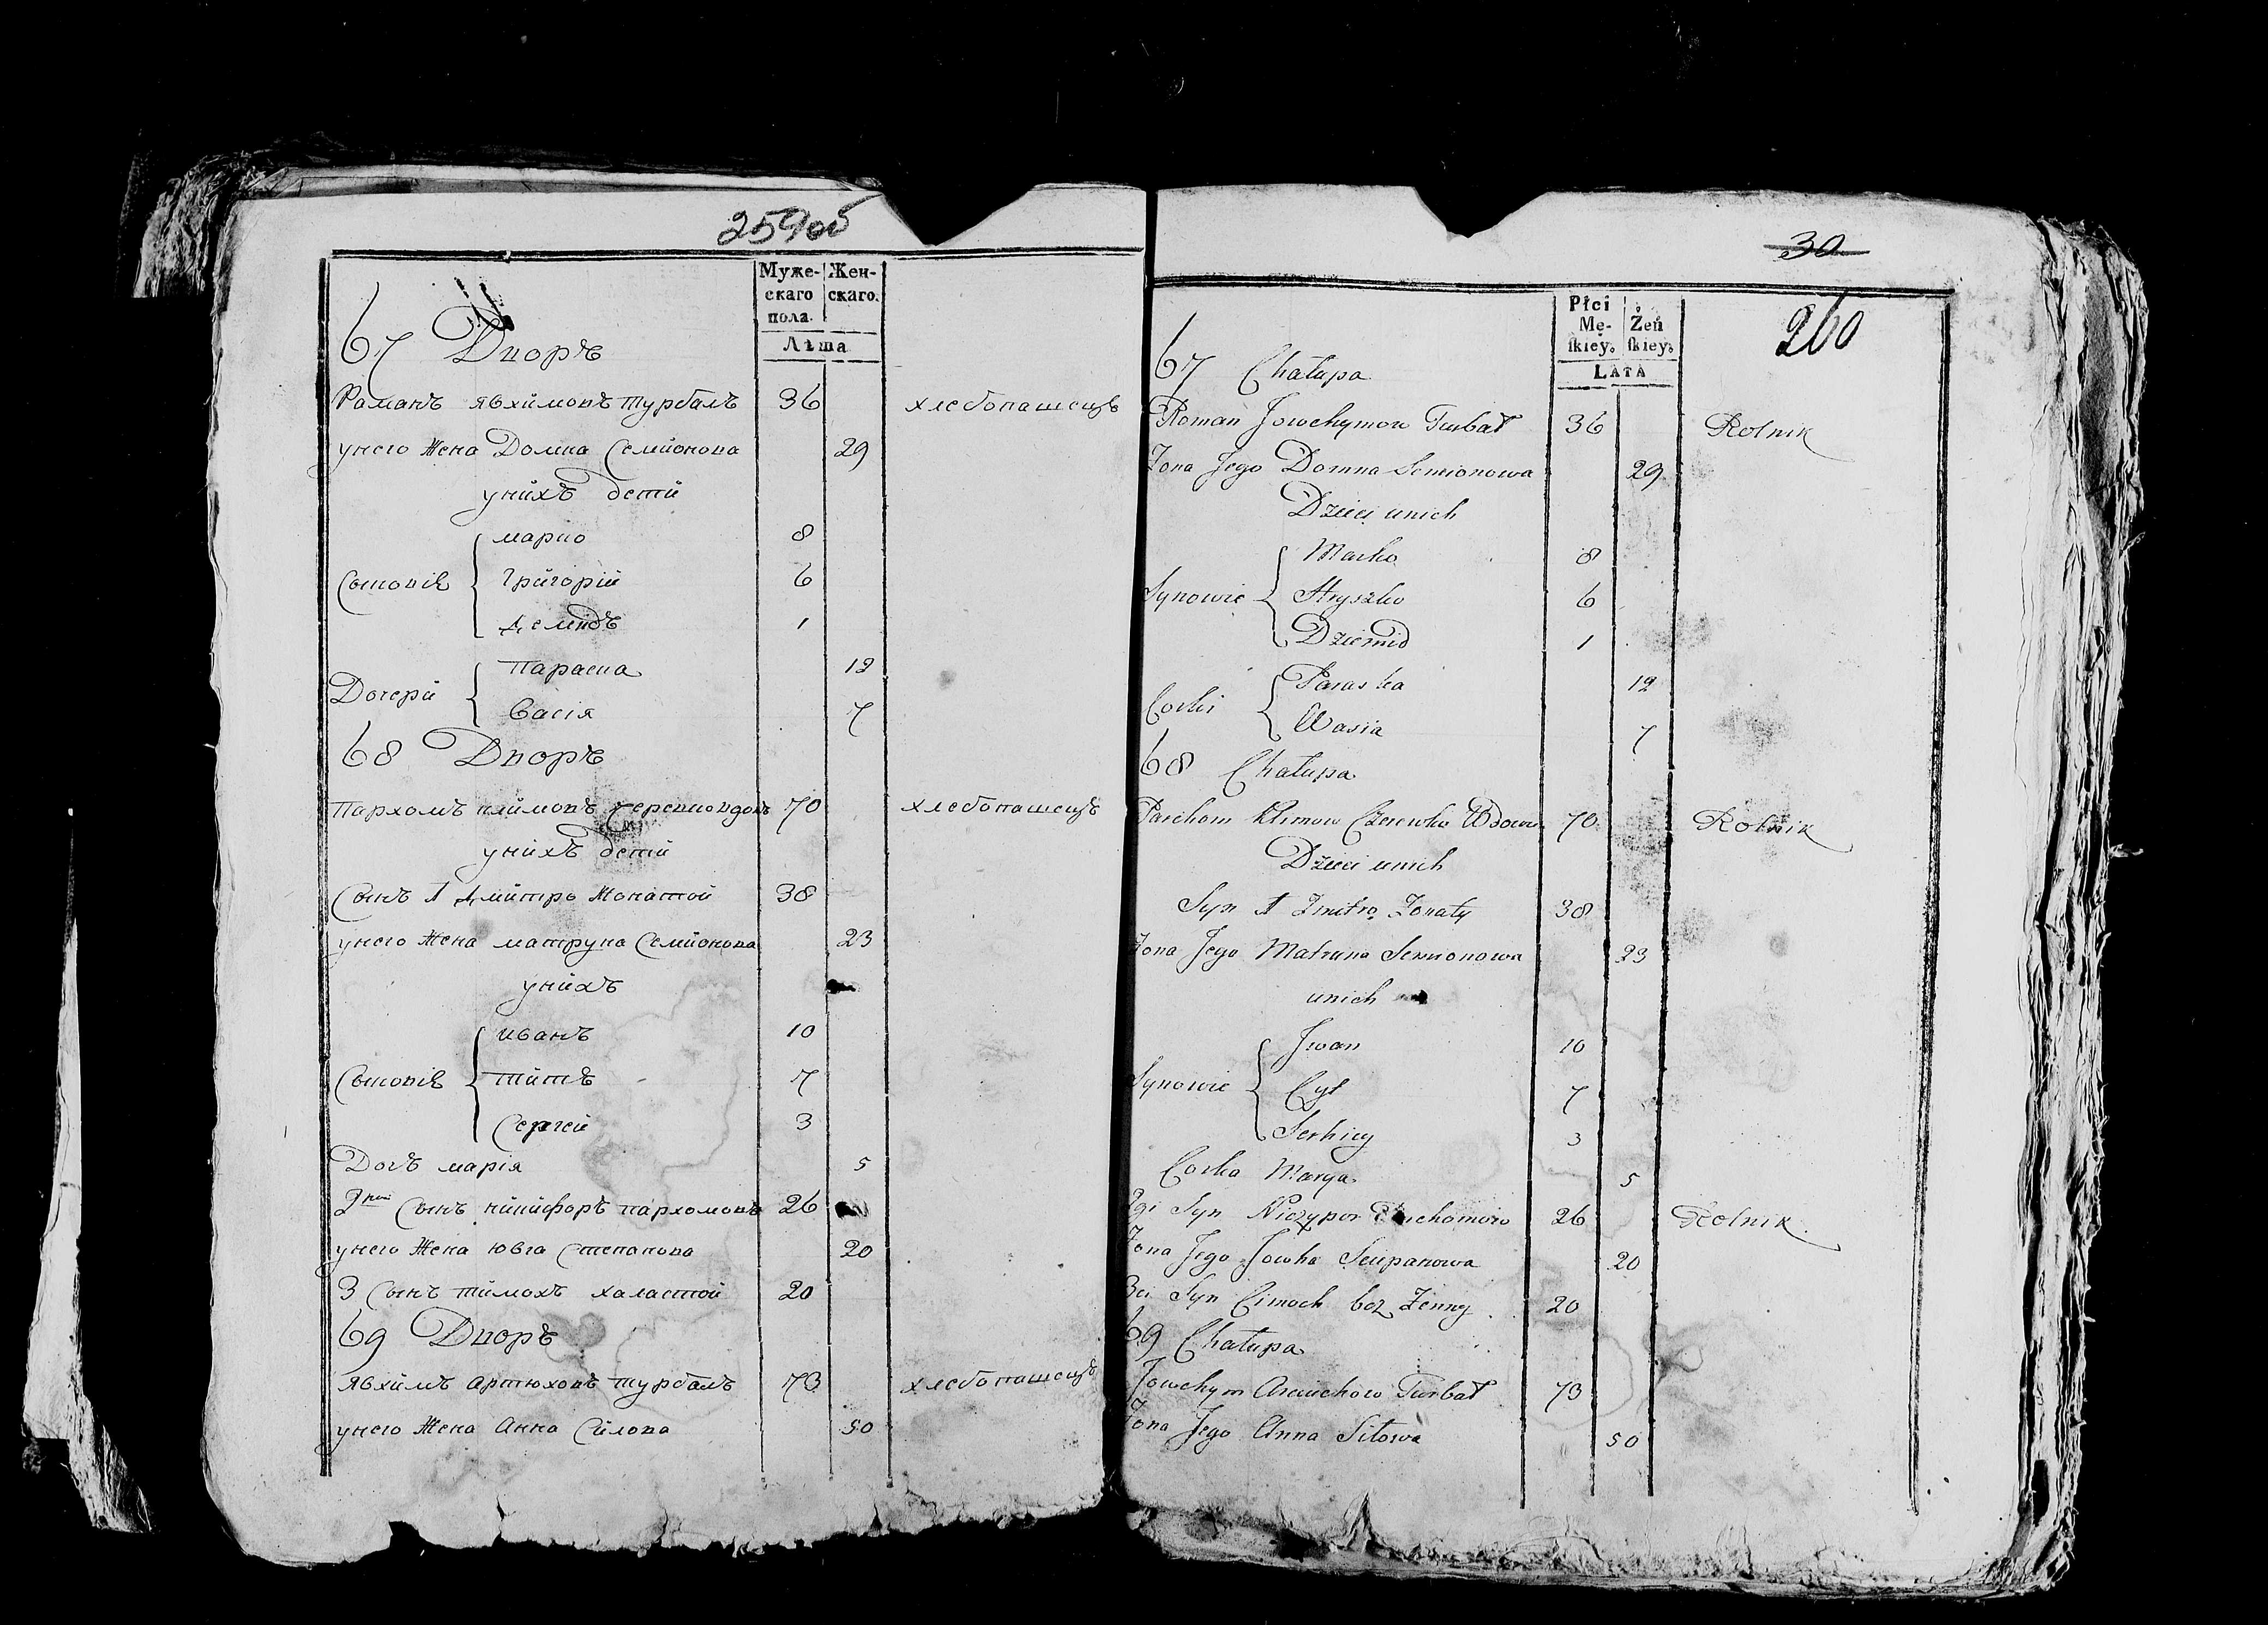 259об
Муже- Жен-
скаго скаго.
пола.
Лѣта
67 Дворъ
Раманъ явхимовъ турбалъ 36 хлебопашецъ
унего Жена Домна Семионова 29
унихъ дети
марко 8
Сыновiѣ Григорiй 6
демидъ 1
параска 12
Дочери
Васiя 7
68 Дворъ
Пархомъ климовъ Черевковдовъ 70 хлебопашецъ
унихъ дети
Сынъ 1 дмитро Жонатой 38
унего Жена матруна Семионова 23
унихъ
иванъ 10
Сыновiѣ титъ 7
Сергей 3
Дочъ марiя 5
2 Сынъ никифоръ пархомовъ 26
унего Жена Ювга Степанова 20
3 Сынъ тимохъ халастой 20
69 Дворъ
Явхимъ артюховъ турбалъ 73 хлебопашецъ
унего Жена Анна Силова 50
30
260
Płci Żeń
Mę- skiey.
skiey.
LATA
67 Chałupa
Roman Jowchymow Turbał 36 Rolnik
Żona Jego Domna Semionowa 29
Dzieci unich
Marko 8
Synowie Hryszko 6
Dziemid 1
Paraska 12
Corki
Wasia 7
68 Chałupa
Parchom Klimow Czerewko Wdowi 70 Rolnik
Dzieci unich
Syn 1 Dmitro Żonaty 38
Żona Jego Matruna Semionowa 23
unich
Jwan 10
Synowie Cyt 7
Serhiey 3
Corka Marya 5
2gi Syn Niczypor Parchomow 26 Rolnik
Żona Jego Jowha Scipanowa 20
3ci Syn Cimoch bez Żenny 20
69 Chałupa
Jowchym Arciuchow Turbał 73
Żona Jego Anna Siłowa 50